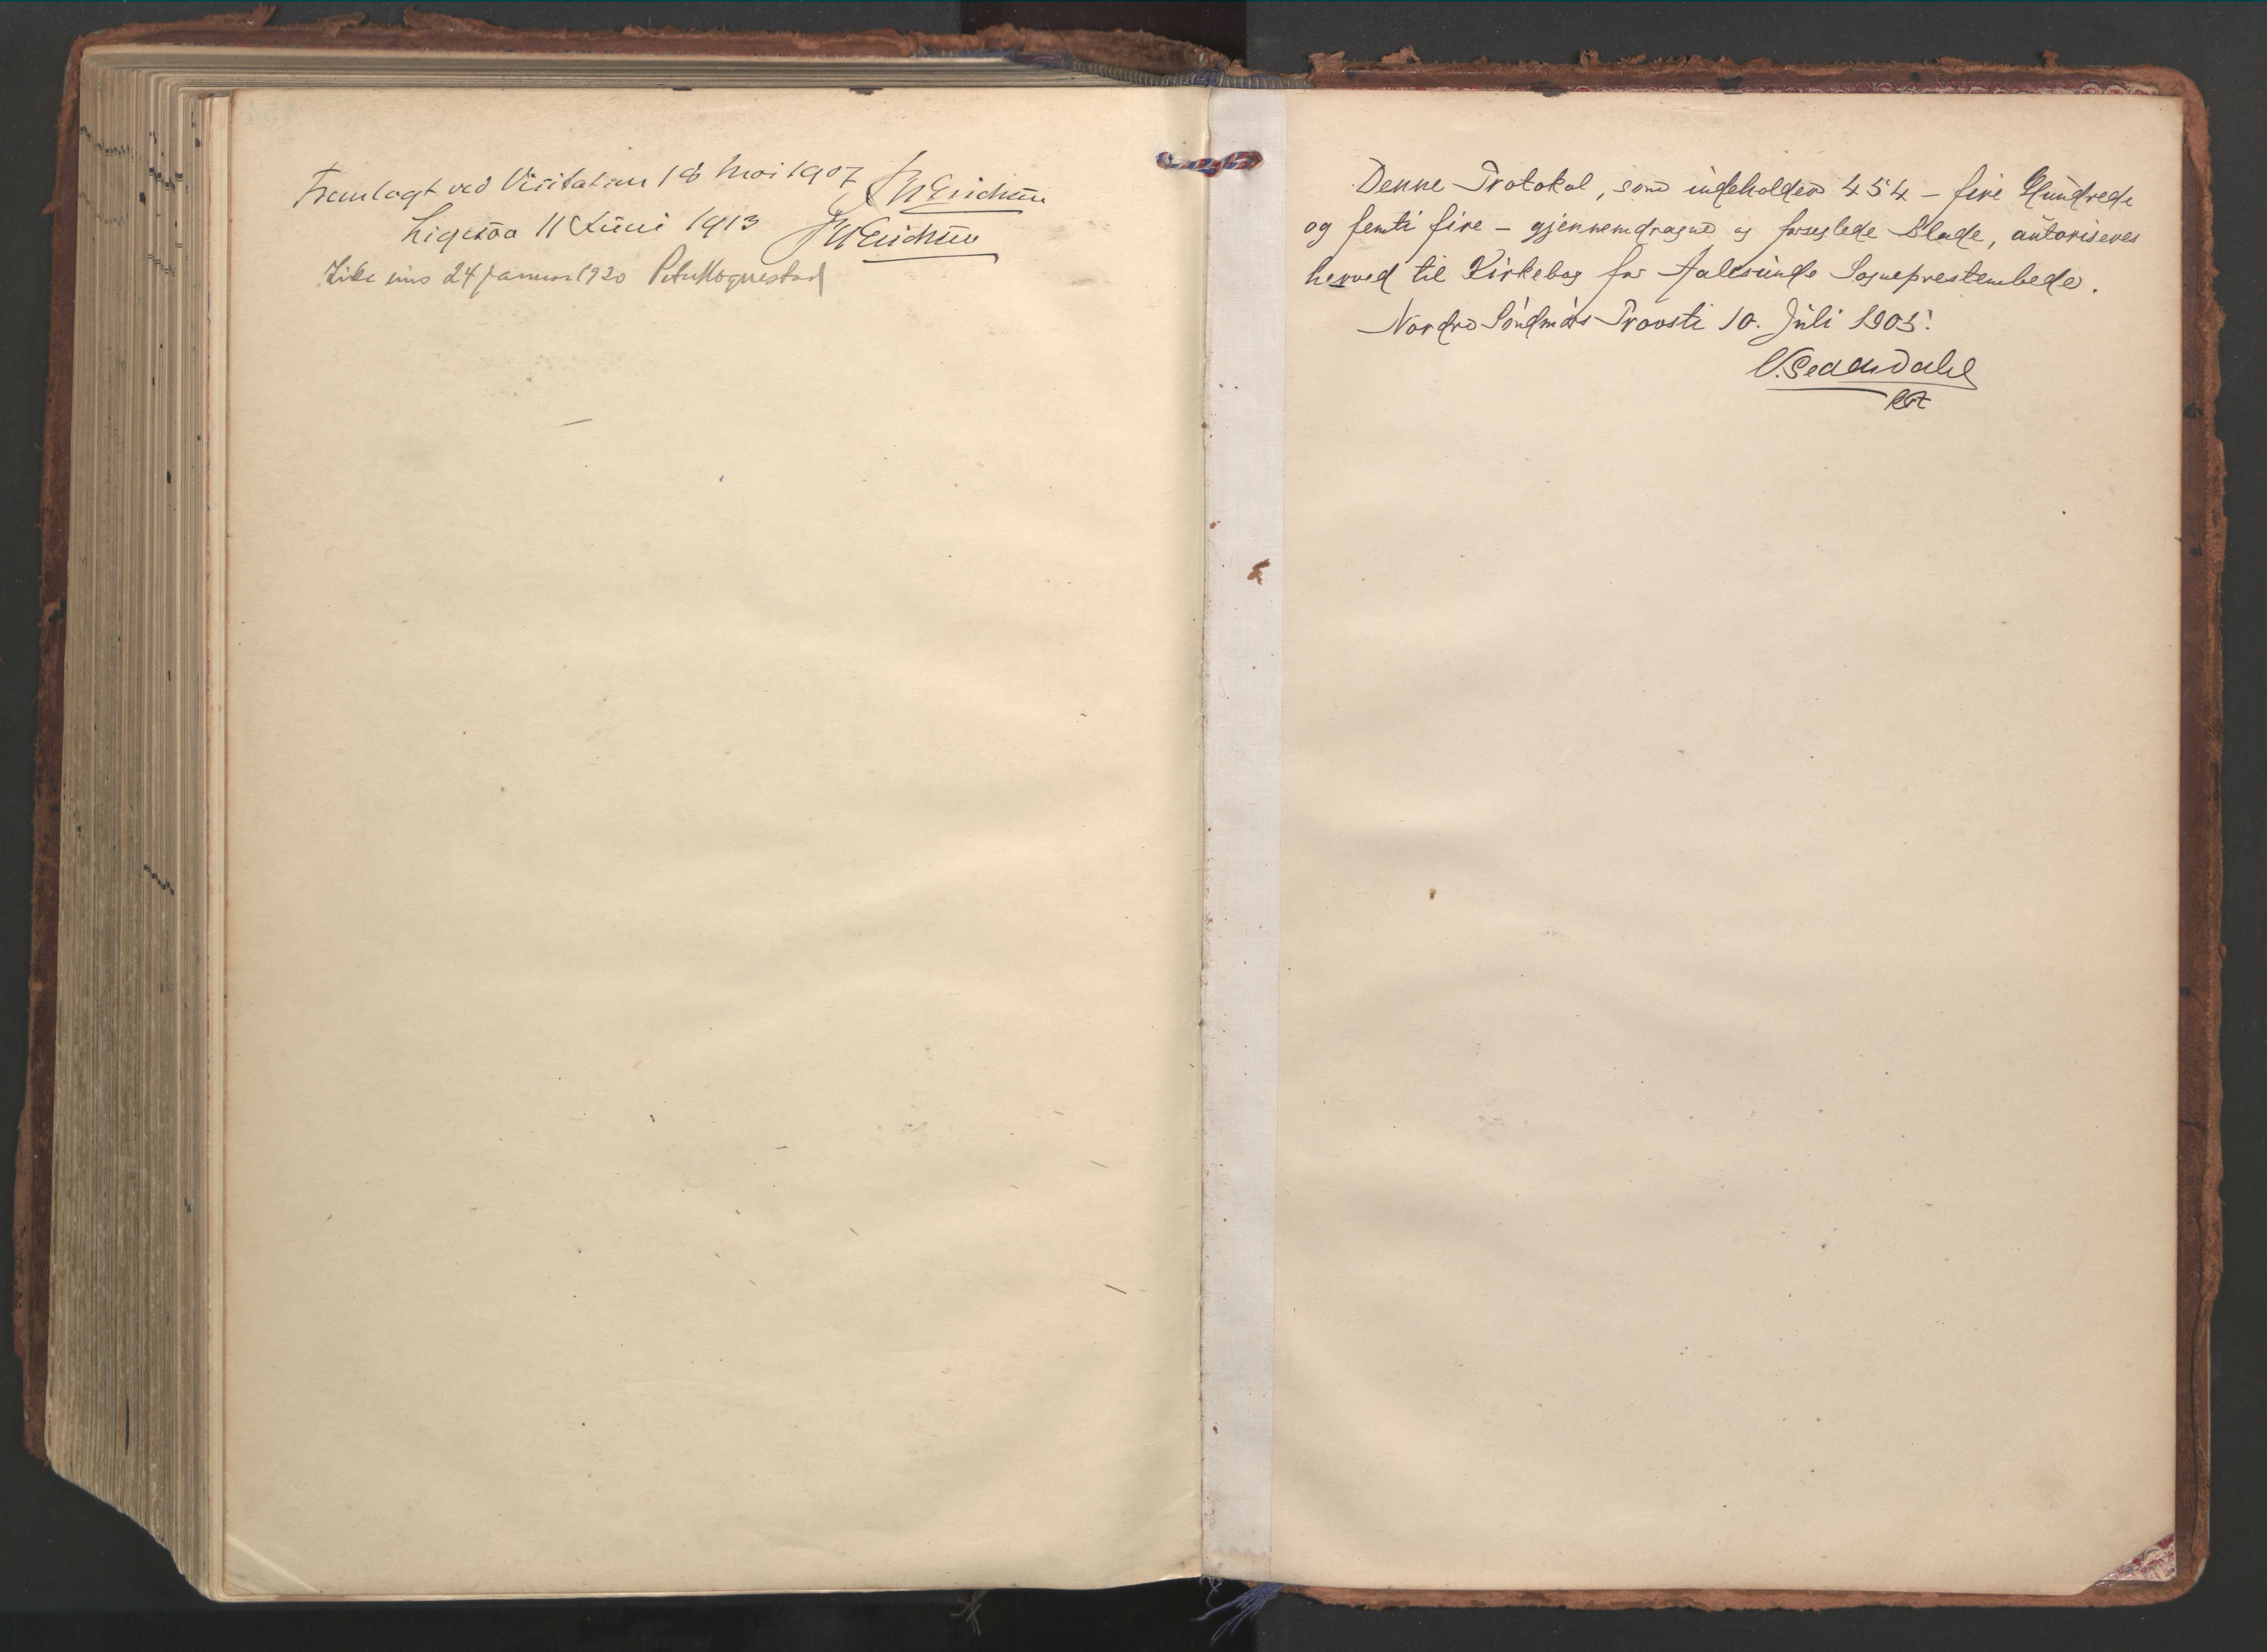 Fremlagt ved Visitatien 18 Mai 1907 J W Erichsen
Ligesaa 11 Juni 1913 J W Erichsen
Like eins 24 Januar 1920 Peter Hognestad
Denne Protokol, som indeholder 454 – fire Hundrede
og femti fire – gjennemdragne og forseglede Blade, autoriseres
herved til Kirkebog for Aalesunds Sogneprestembede.
Nordre Søndmørs Provsti 10. Juli 1905.